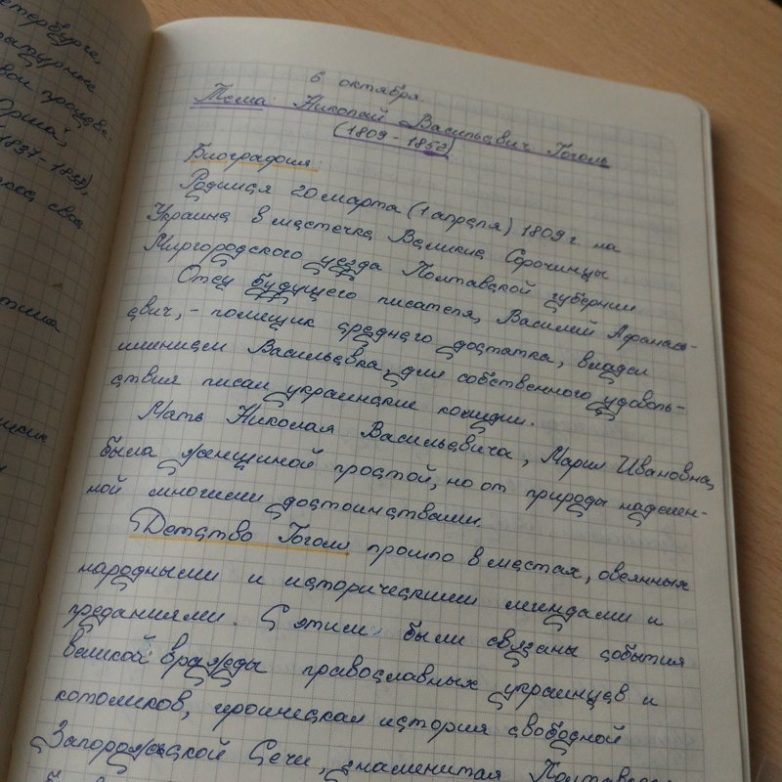 етербурга,
6 октября
Тема: Николай Васильевич Гоголь
(1809 - 1852)
Биография:
Родился 20 марта (1 апреля) 1809 г на
Украине в местечке Великие Сорочинцы
Миргородского уезда Полтавской губернии
Отец будущего писателя, Василий Афанась-
евич, - помещик среднего достатка, владел
имением Васильевка, для собственного удоволь-
ствия писал украинские комедии.
Мать Николая Васильевича, Мария Ивановна,
была женщиной простой, но от природы наделен-
ной многими достоинствами.
Детство Гоголя прошло в местах, овеянных
народными и историческими легендами и
преданиями. С этим были связаны события
великой вражды православных украинцев и
католиков, героическая история свободной
Запорожской Сечи, знаменитая